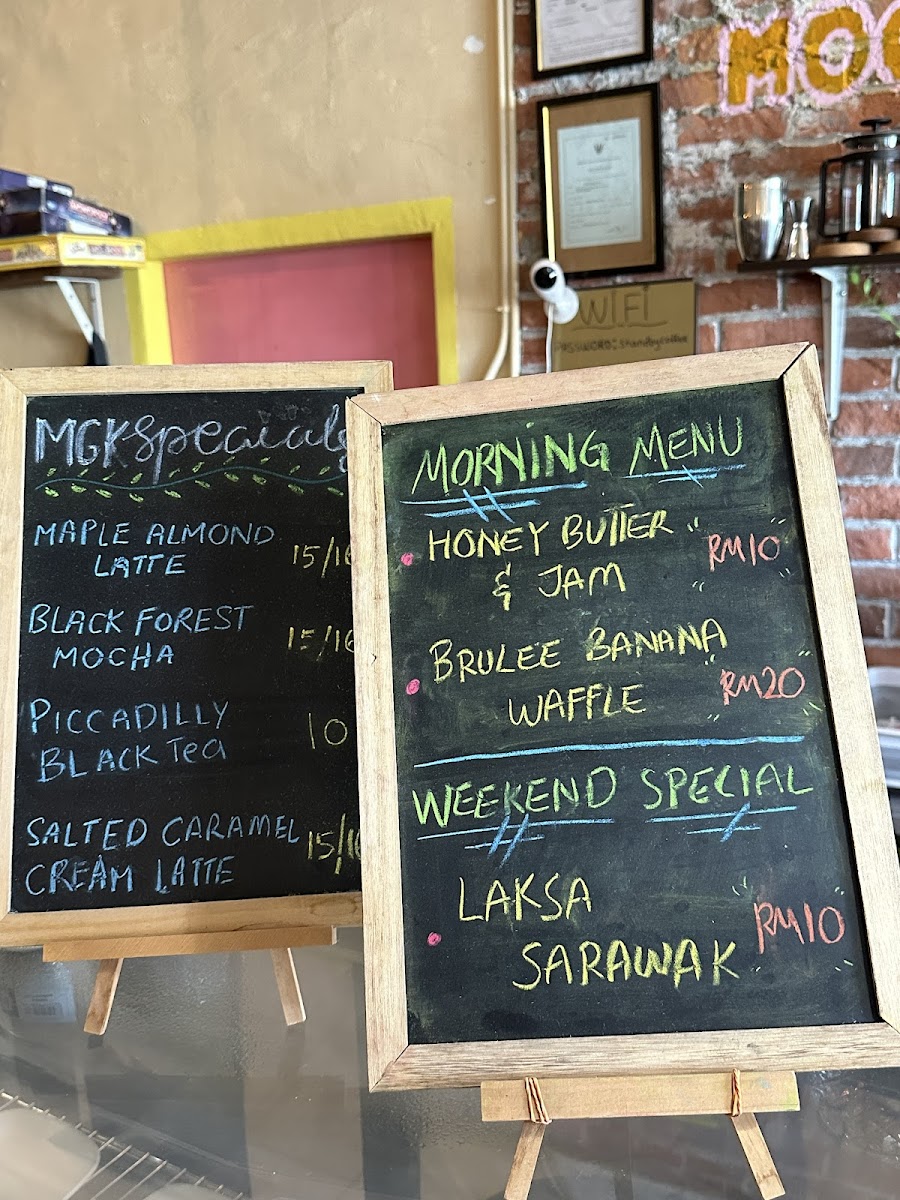 MOO
WIFI
PASSWORD: standbycoffee
MGK Specials
MAPLE ALMOND
LATTE
15/16
BLACK FOREST
MOCHA
15/16
PICCADILLY
BLACK Tea
10
SALTED CARAMEL
CREAM LATTE
15/16
MORNING MENU
HONEY BUTTER
& JAM
RM10
BRULEE BANANA
WAFFLE
RM20
WEEKEND SPECIAL
LAKSA
SARAWAK
RM10